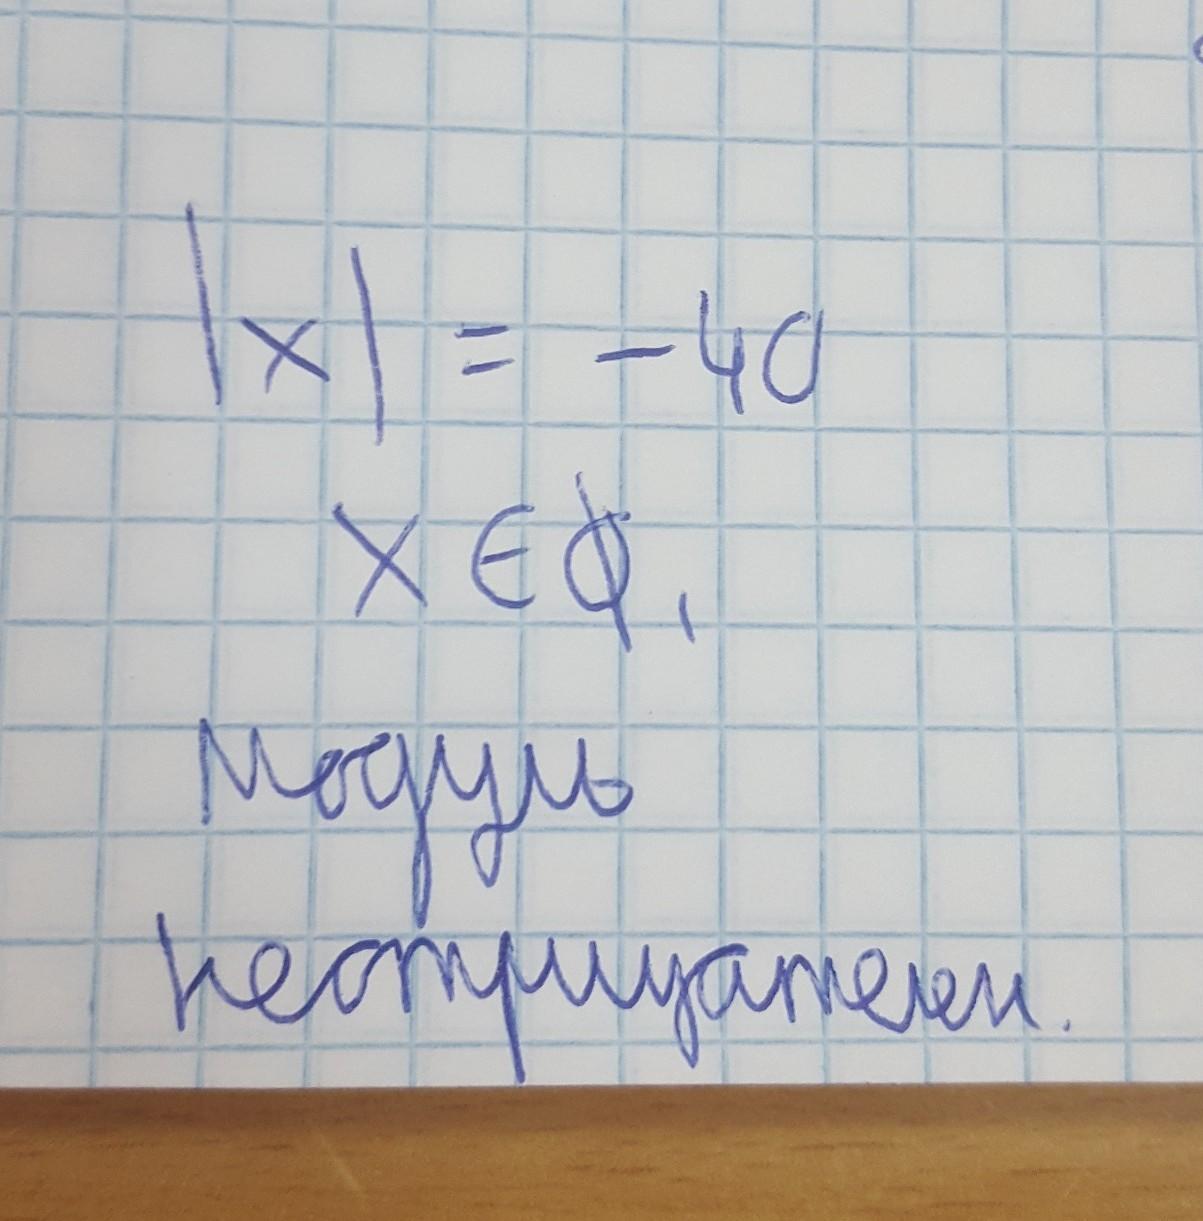 |x| = -40
x ∈ ∅,
Модуль
неотрицателен.